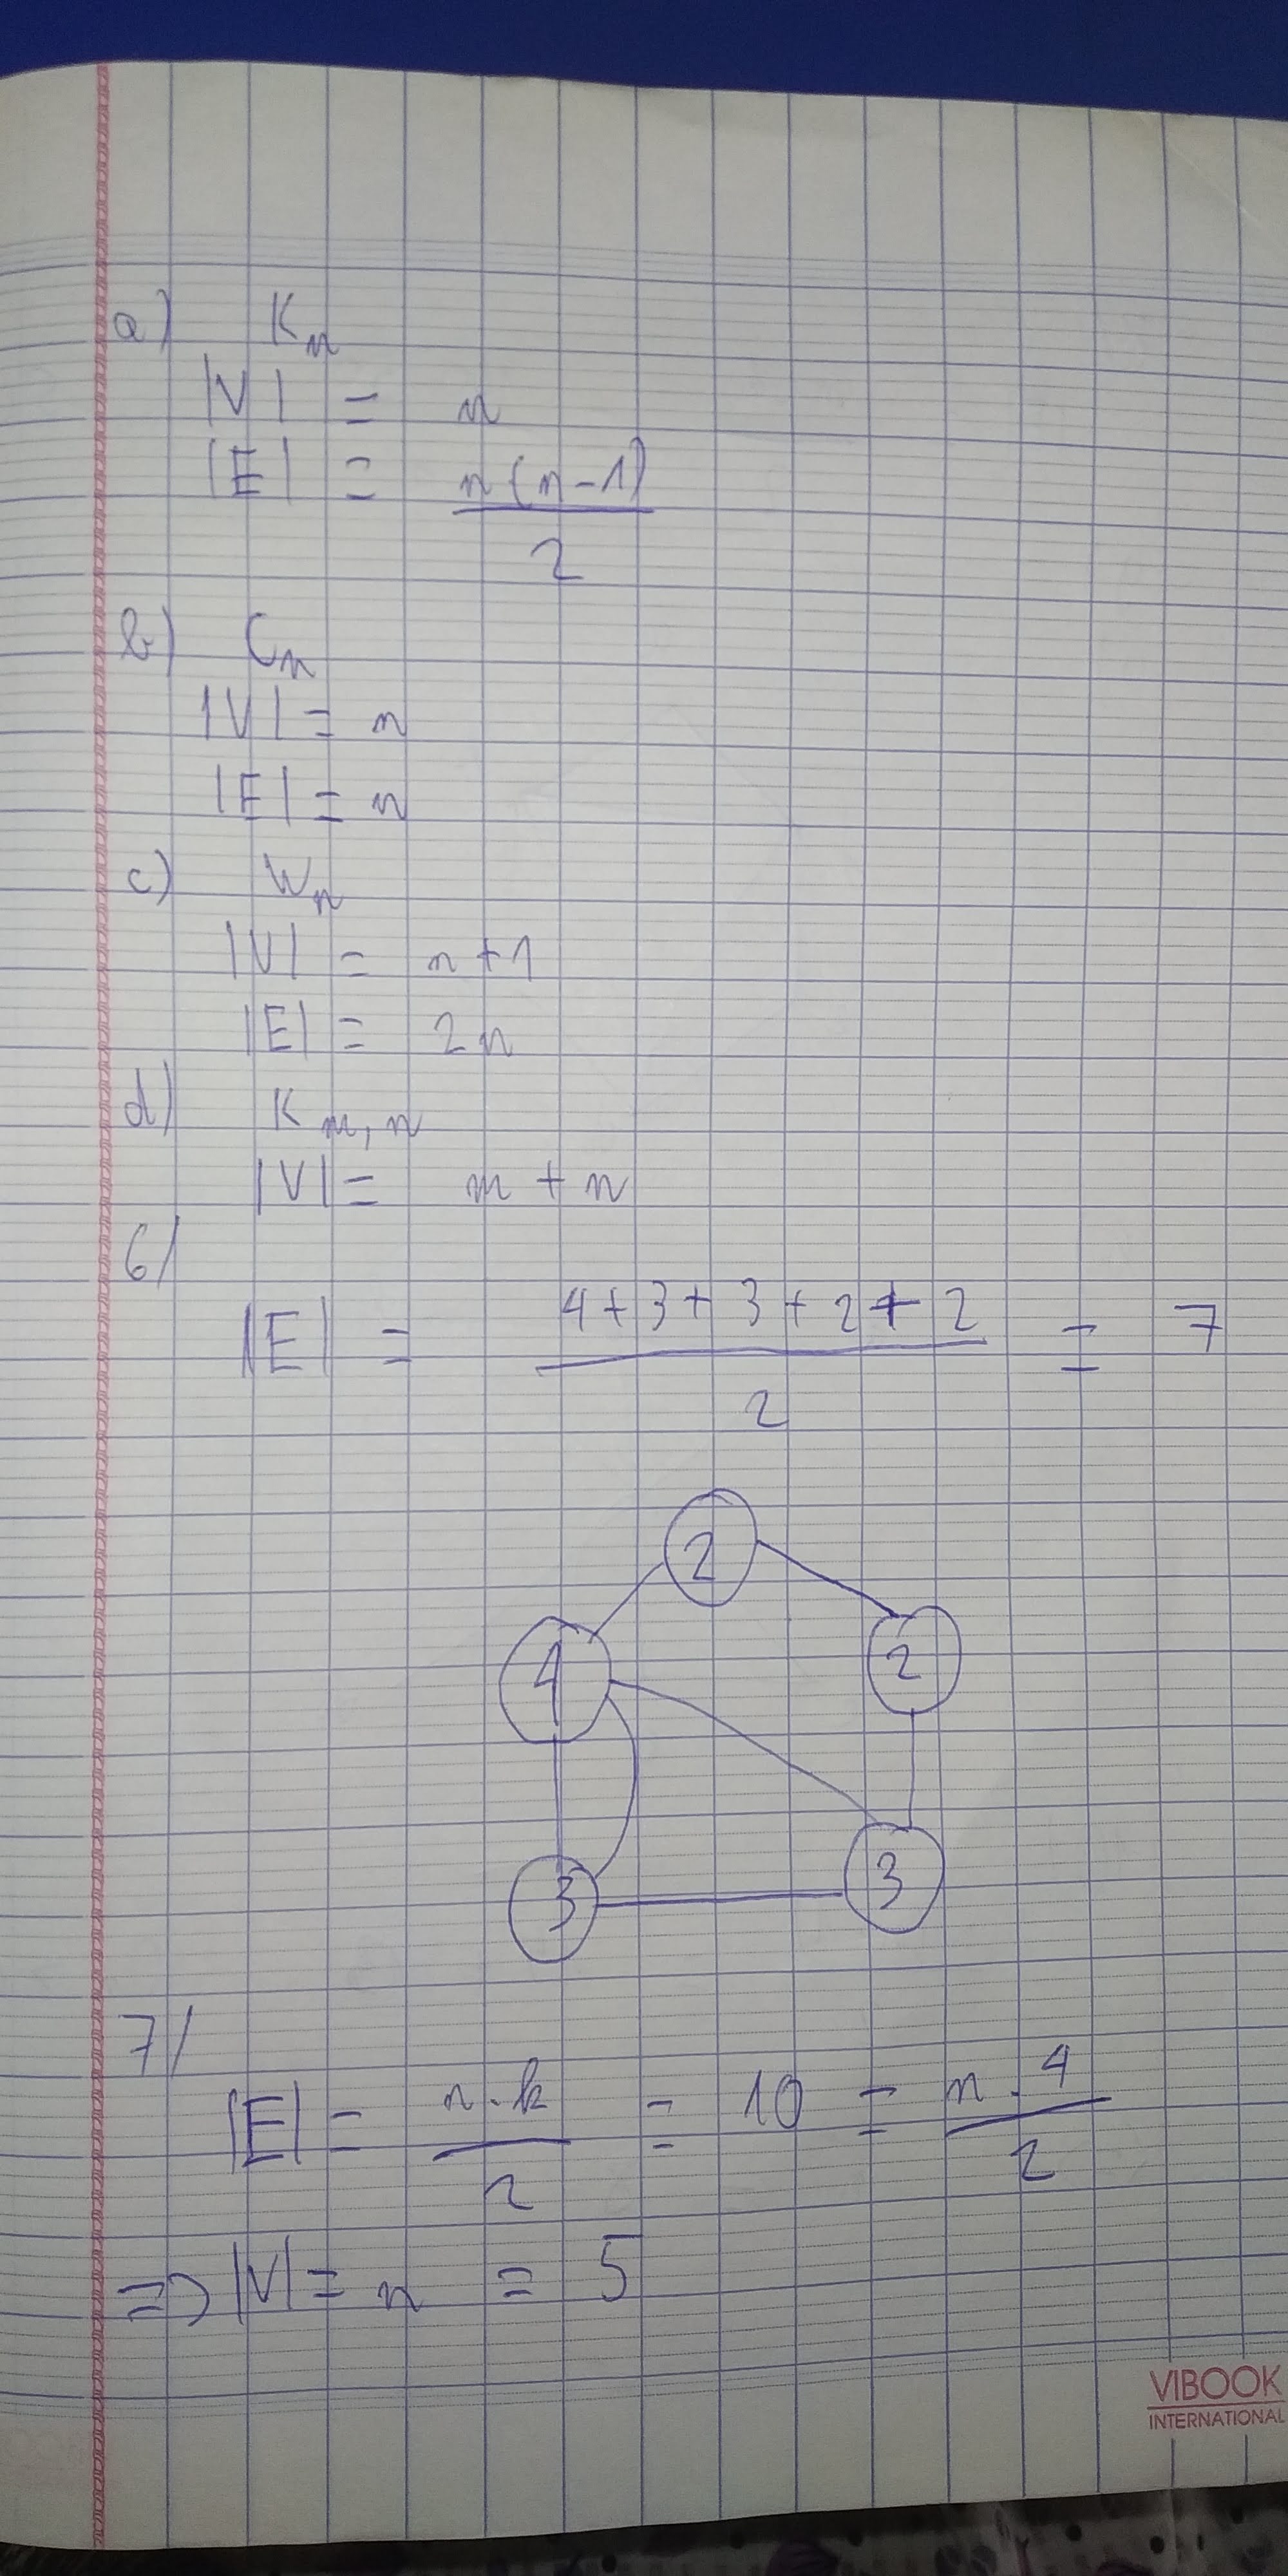 a) Kn
|V| = n
|E| = n(n-1)
2
b) Cn
|V| = n
|E| = n
c) Wn
|V| = n+1
|E| = 2n
d) Km,n
|V| = m + n
6/
|E| = 4+3+3+2+2 = 7
2
2
4
2
3
3
7/
|E| = n.k = 10 = n.4
2 2
=> |V| = n = 5
VIBOOK
INTERNATIONAL